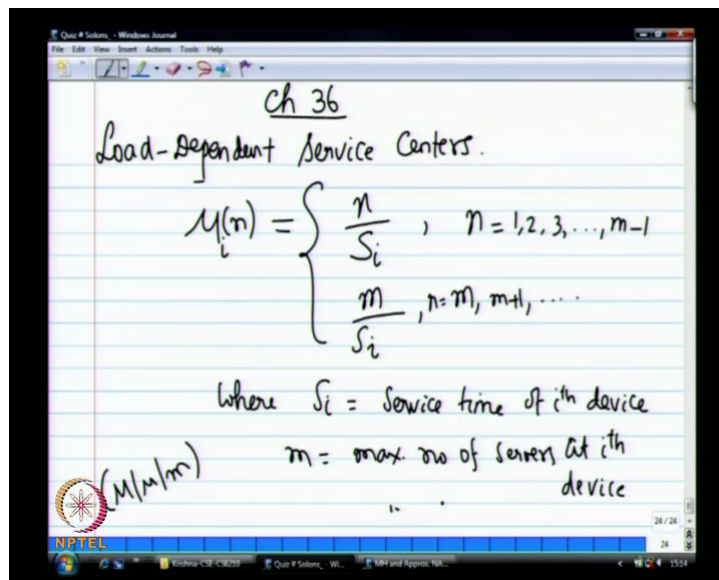 Quiz # Solons_ - Windows Journal
File Edit View Insert Actions Tools Help
Ch 36
Load-Dependent Service Centers.
μi(n) = { n/Si , n = 1, 2, 3, ..., m-1
m/Si , n= m, m+1, ....
Where Si = Service time of ith device
(M/M/m) m = max. no of servers at ith
device
NPTEL
24 / 24
24
Krishna-CSE-CS6210 Quiz # Solons_ - Wi... MH and Approx. NA...
1514